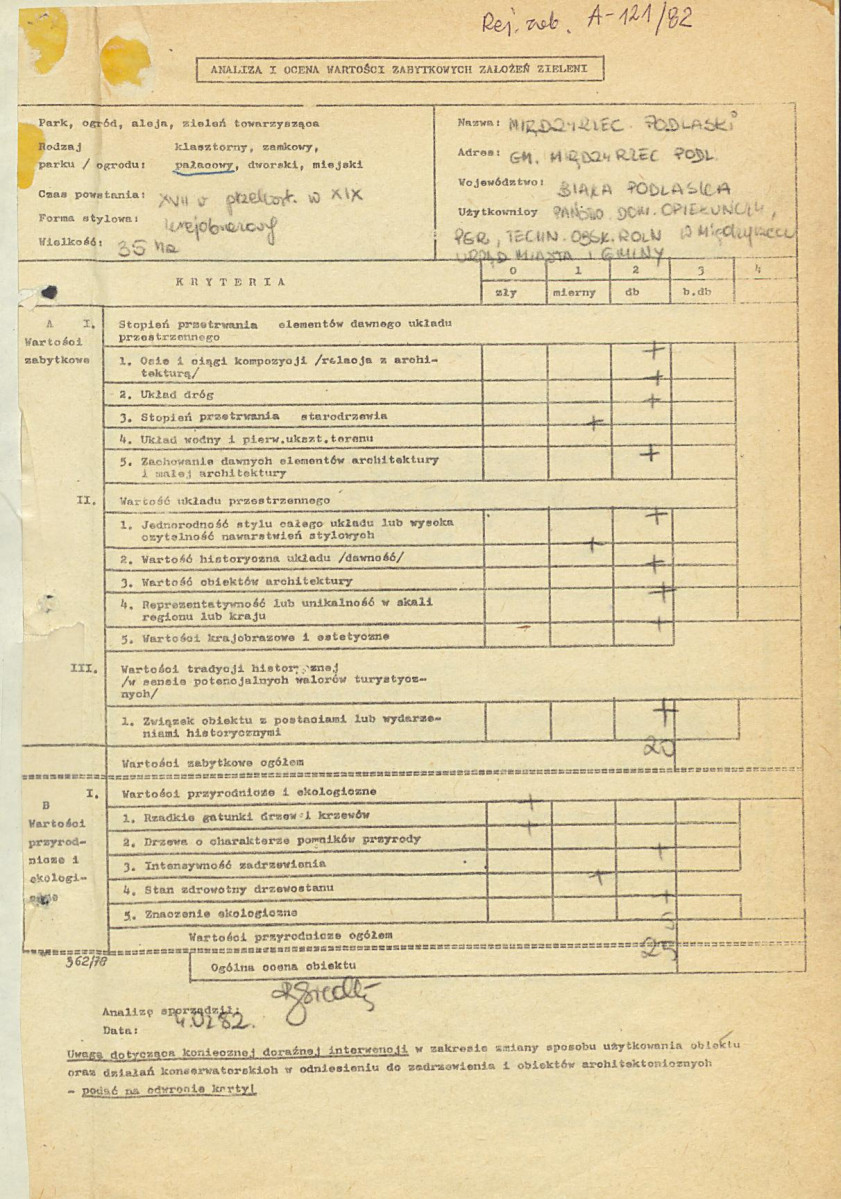 Rej. zab. A-121/82
ANALIZA I OCENA WARTOŚCI ZABYTKOWYCH ZAŁOŻEŃ ZIELENI
Park, ogród, aleja, zieleń towarzysząca
Rodzaj klasztorny, zamkowy,
parku / ogrodu: pałacowy, dworski, miejski
Czas powstania: XVII w przekszt. w XIX
Forma stylowa: krajobrazowy
Wielkość: 35 ha
Nazwa: MIĘDZYRZEC PODLASKI
Adres: GM. MIĘDZYRZEC PODL.
Województwo: BIAŁA PODLASKA
Użytkownicy PAŃSTW. DOM. OPIEKUŃCZY,
PGR, TECHN. OBSŁ. ROLN W Międzyrzecu
URZĄD MIASTA I GMINY
KRYTERIA
0 1 2 3 4
zły mierny db b.db
A I. Stopień przetrwania elementów dawnego układu
Wartości przestrzennego
zabytkowe
1. Osie i ciągi kompozycji /relacja z archi- +
tekturą/
2. Układ dróg +
3. Stopień przetrwania starodrzewia +
4. Układ wodny i pierw.ukszt.terenu +
5. Zachowanie dawnych elementów architektury +
i małej architektury
II. Wartość układu przestrzennego
1. Jednorodność stylu całego układu lub wysoka +
czytelność nawarstwień stylowych
2. Wartość historyczna układu /dawność/ +
3. Wartość obiektów architektury +
4. Reprezentatywność lub unikalność w skali +
regionu lub kraju
5. Wartości krajobrazowe i estetyczne +
III. Wartości tradycji historycznej
/w sensie potencjalnych walorów turystycz-
nych/
1. Związek obiektu z postaciami lub wydarze- +
niami historycznymi
Wartości zabytkowe ogółem 20
B I. Wartości przyrodnicze i ekologiczne
Wartości
przyrod-
nicze i
ekologi-
czne
1. Rzadkie gatunki drzew i krzewów +
2. Drzewa o charakterze pomników przyrody +
3. Intensywność zadrzewienia +
4. Stan zdrowotny drzewostanu +
5. Znaczenie ekologiczne +
Wartości przyrodnicze ogółem 5
362/78
Ogólna ocena obiektu 25
Analizę sporządził:
Data:
Uwaga dotycząca koniecznej doraźnej interwencji w zakresie zmiany sposobu użytkowania obiektu
oraz działań konserwatorskich w odniesieniu do zadrzewienia i obiektów architektonicznych
- podać na odwrocie karty!